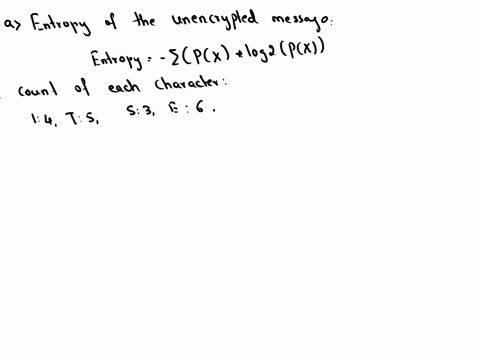 a> Entropy of the unencrypted message:
Entropy = - Σ(P(x) * log2(P(x))
count of each character:
I:4, T:5, S:3, E:6.